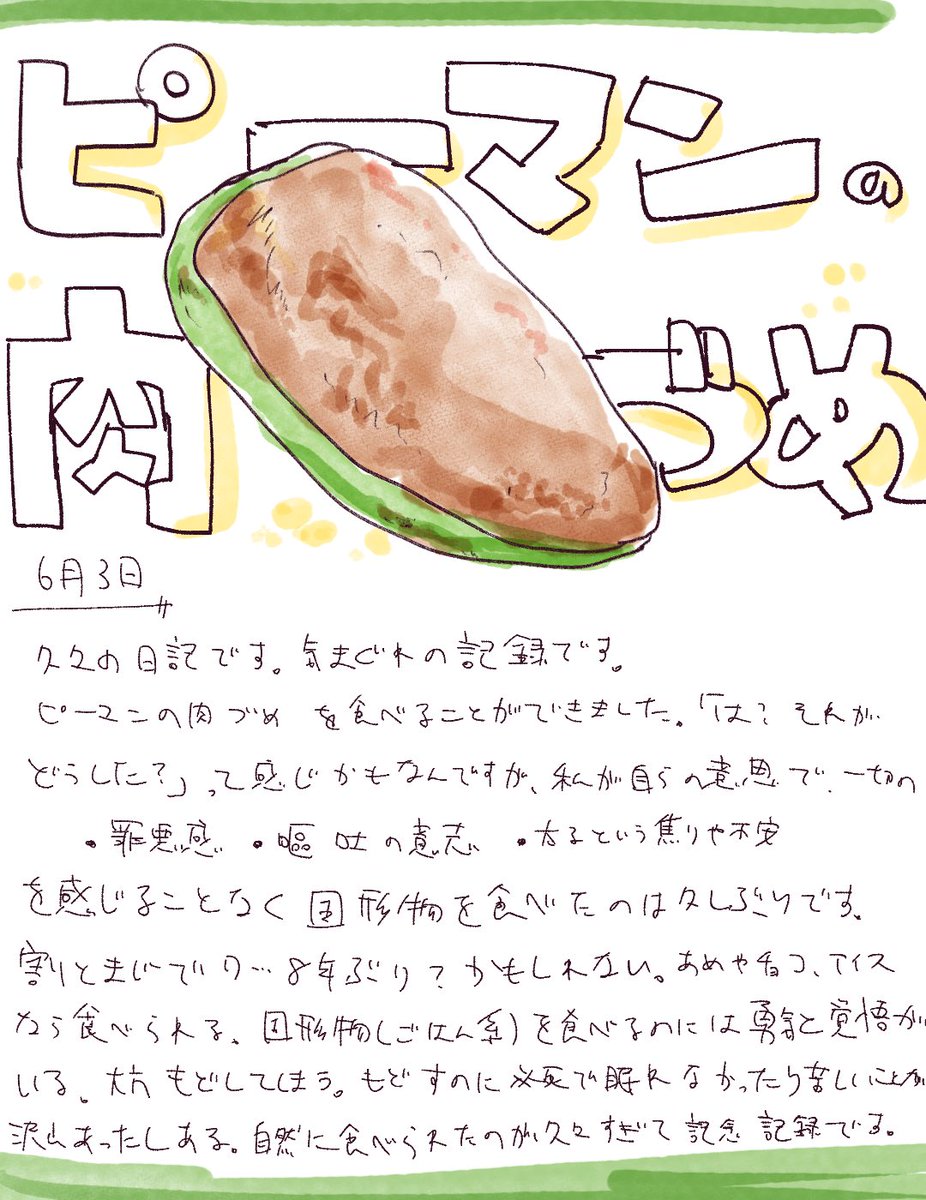 ピーマンの
肉づめ
6月3日
久々の日記です。気まぐれの記録です。
ピーマンの肉づめ を食べることができました。「は？それが
どうした？」って感じかもなんですが、私が自らの意思で、一切の
・罪悪感 ・嘔吐の意志 ・太るという焦りや不安
を感じることなく固形物を食べたのは久しぶりです。
割とまじで7…8年ぶり？かもしれない。あめやチョコ、アイス
なら食べられる、固形物(ごはん系)を食べるのには勇気と覚悟が
いる。大方もどしてしまう。もどすのに必死で眠れなかったり苦しいことが
沢山あったしある。自然に食べられたのが久々すぎて記念記録です。